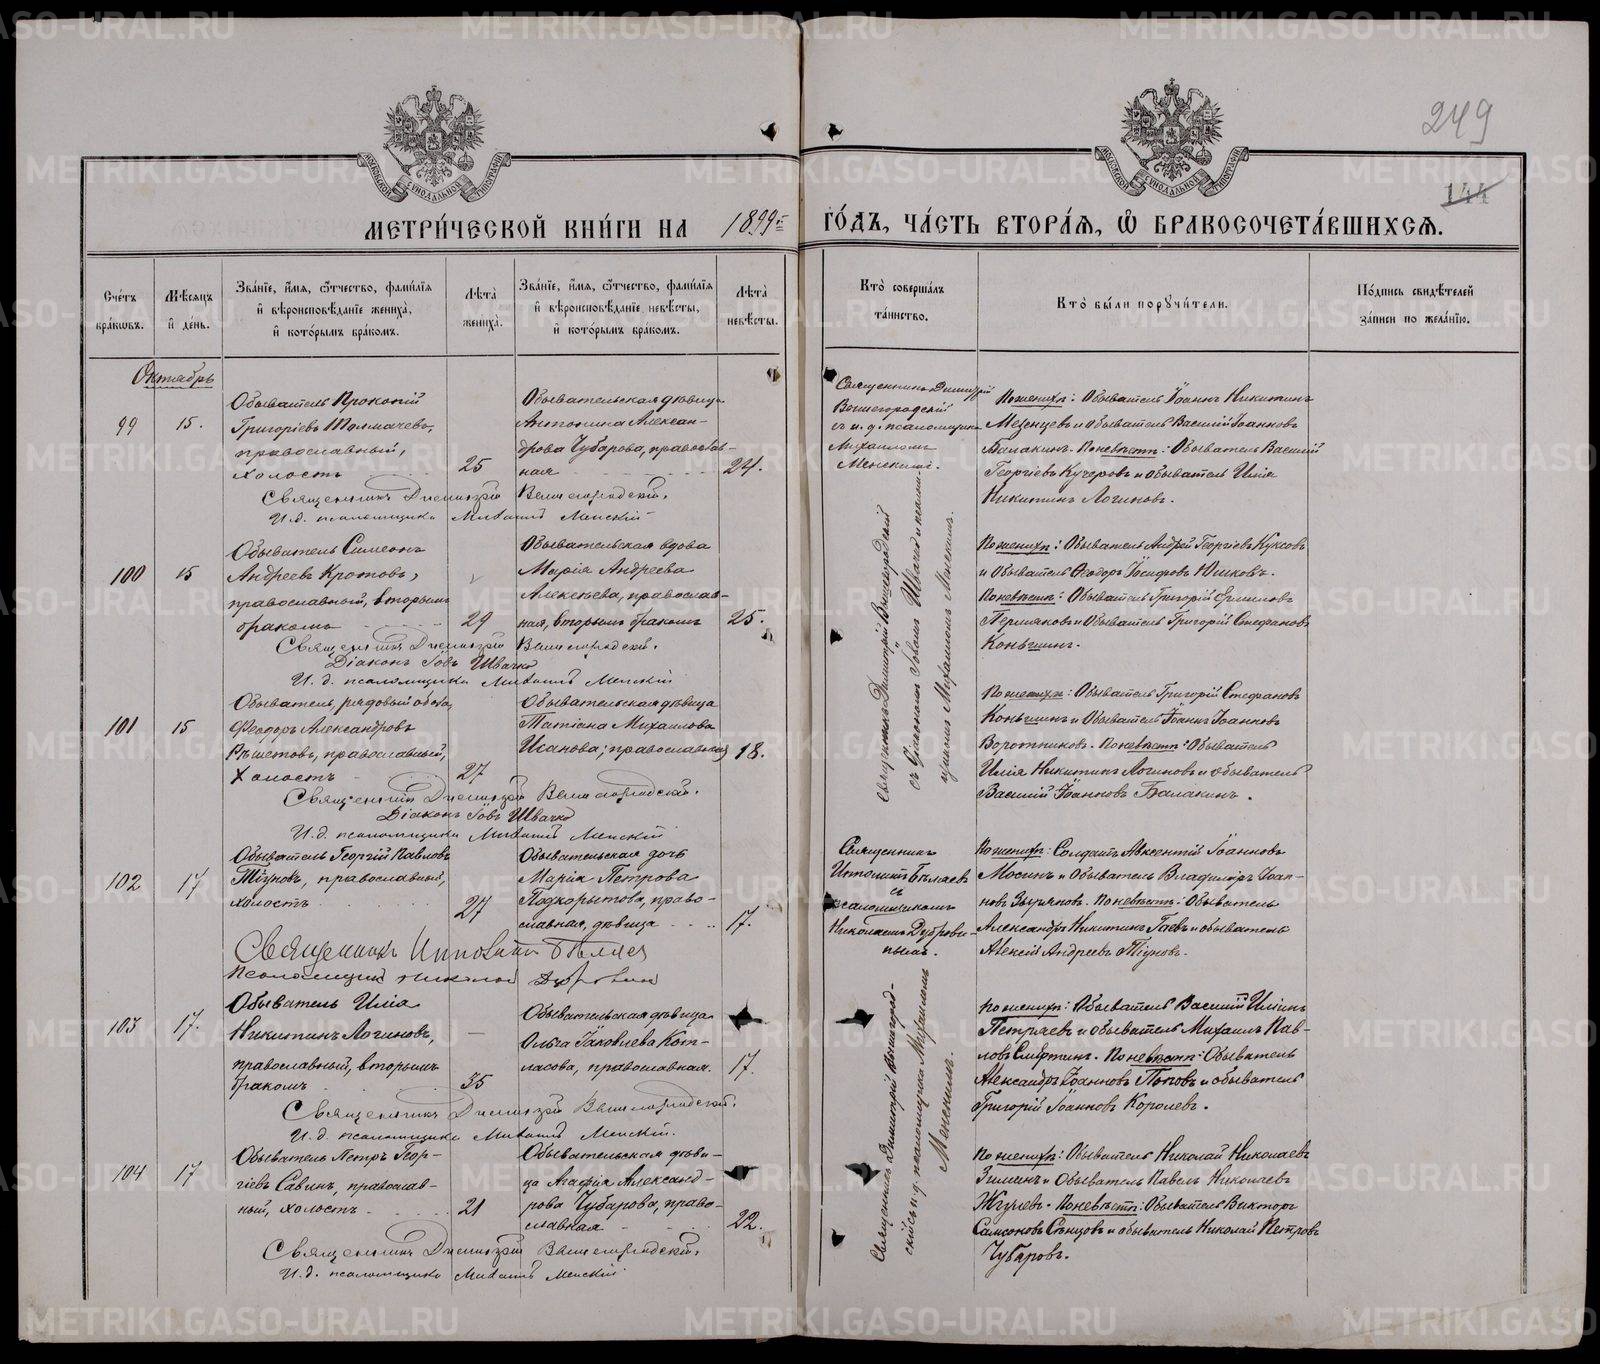 249
144
МЕТРИ́ЧЕСКОЙ КНИ́ГИ НА 1899й ГО́ДЪ, ЧА́СТЬ ВТОРА́Я, Ѽ БРАКОСОЧЕТА́ВШИХСЯ.
Сче́тъ бра́ковъ.
Мѣ́сяцъ и҆ де́нь.
Зва́нїе, и҆́мя, ѻ҆́тчество, фами́лїя
и҆ вѣроисповѣ́данїе жениха̀,
и҆ кото́рымъ бра́комъ.
Лѣ́та жениха̀.
Зва́нїе, и҆́мя, ѻ҆́тчество, фами́лїя
и҆ вѣроисповѣ́данїе невѣ́сты,
и҆ кото́рымъ бра́комъ.
Лѣ́та невѣ́сты.
Кто̀ соверша́лъ
та́инство.
Кто̀ бы́ли порꙋчи́тели.
По́дпись свидѣ́телей
за́писи по жела́нїю.
Октябрь
99
15.
Обыватель Прокопій
Григоріевъ Толмачевъ,
православный,
холостъ
25
Обывательская дѣвица
Антонина Алексан-
дрова Чубарова, православ-
ная
24.
Священникъ Димитрій
Вышегородскій
съ и. д. псаломщика
Михаиломъ
Менскимъ.
По женихѣ: Обыватель Іоаннъ Никитинъ
Мезенцевъ и обыватель Василій Іоанновъ
Балакинъ. По невѣстѣ: Обыватель Василій
Георгіевъ Кучеровъ и обыватель Илія
Никитинъ Логиновъ.
Священникъ Димитрій Вышегородскій.
И. д. псаломщика Михаилъ Менскій
100
15
Обыватель Симеонъ
Андреевъ Кротовъ,
православный, вторымъ
бракомъ
29
Обывательская вдова
Марія Андреева
Алексѣева, православ-
ная, вторымъ бракомъ
25.
Священникъ Димитрій Вышегородскій
съ діакономъ Іовомъ Швачко и псалом-
щикомъ Михаиломъ Менскимъ.
По женихѣ: Обыватель Андрей Георгіевъ Куксовъ
и Обыватель Ѳеодоръ Іосифовъ Юшковъ.
По невѣстѣ: Обыватель Григорій
Пермяковъ и Обыватель Григорій Стефановъ
Коньшинъ.
Священникъ Димитрій Вышегородскій.
Діаконъ Іовъ Швачко
И. д. псаломщика Михаилъ Менскій
101
15
Обыватель, рядовый обоза,
Ѳеодоръ Александровъ
Рѣшетовъ, православный,
Холостъ
27
Обывательская дѣвица
Татіана Михаилова
Исанова, православная
18.
По женихѣ: Обыватель Григорій Стефановъ
Коньшинъ и Обыватель Іоаннъ Іоанновъ
Воротниковъ. По невѣстѣ: Обыватель
Илія Никитинъ Логиновъ и обыватель
Василій Іоанновъ Балакинъ.
Священникъ Димитрій Вышегородскій.
Діаконъ Іовъ Швачко
И. д. псаломщика Михаилъ Менскій
102
17
Обыватель Георгій Павловъ
Тіуновъ, православный,
холостъ
27
Обывательская дочь
Марія Петрова
Подкорытова, право-
славная, дѣвица
17.
Священникъ
Ипполитъ Бѣляевъ
съ
псаломщикомъ
Николаемъ Дуброви-
нымъ.
По женихѣ: Солдатъ Авксентій Іоанновъ
Мосинъ и Обыватель Владиміръ Іоан-
новъ Зыряновъ. По невѣстѣ: Обыватель
Александръ Никитинъ Гаевъ и обыватель
Алексій Андреевъ Тіуновъ.
Священникъ Ипполитъ Бѣляевъ
Псаломщикъ Николай Дубровинъ
103
17.
Обыватель Илія
Никитинъ Логиновъ,
православный, вторымъ
бракомъ
35
Обывательская дѣвица
Ольга Іаковлева Кот-
ласова, православная.
17.
Священникъ Димитрій Вышегород-
скій съ и. д. псаломщика Михаиломъ
Менскимъ.
По женихѣ: Обыватель Василій Иліинъ
Петряевъ и обыватель Михаилъ Пав-
ловъ Смертинъ. По невѣстѣ: Обыватель
Александръ Іоанновъ Поповъ и обыватель
Григорій Іоанновъ Королевъ.
Священникъ Димитрій Вышегородскій.
И. д. псаломщика Михаилъ Менскій.
104
17
Обыватель Петръ Геор-
гіевъ Савинъ, православ-
ный, холостъ
21
Обывательская дѣви-
ца Агафія Александ-
рова Чубарова, право-
славная
22.
По женихѣ: Обыватель Николай Николаевъ
Зиминъ и Обыватель Павелъ Николаевъ
Жгулевъ. По невѣстѣ: Обыватель Викторъ
Самсоновъ Сѣнцовъ и обыватель Николай Петровъ
Чубаровъ.
Священникъ Димитрій Вышегородскій.
И. д. псаломщика Михаилъ Менскій
METRIKI.GASO-URAL.RU